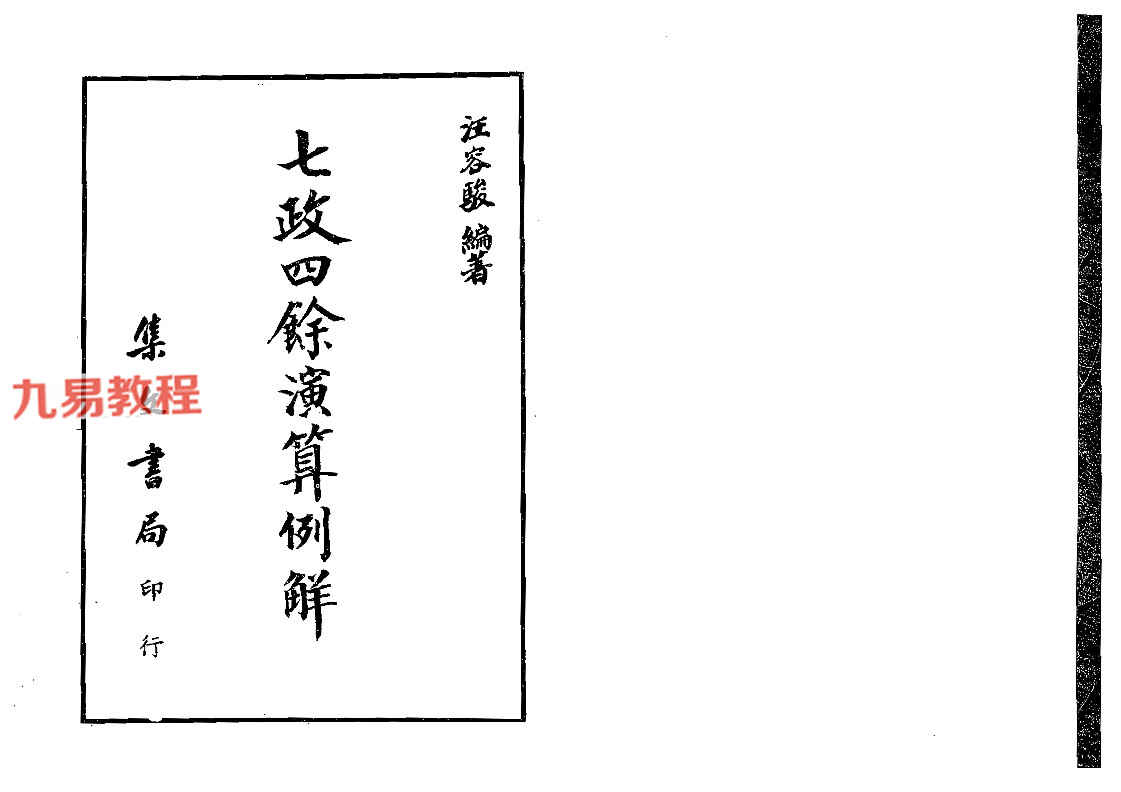 汪容駿 編著
七政四餘演算例解
集文書局印行
九易教程